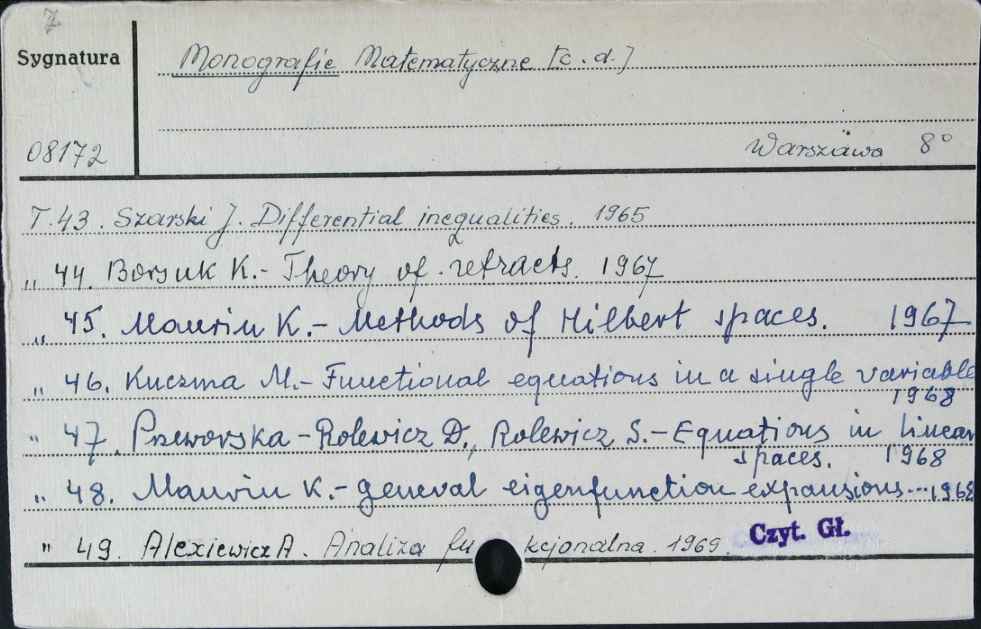 7
Sygnatura
Monografie Matematyczne [c.d.]
08172
Warszawa 8°
T.43. Szarski J. Differential inequalities. 1965
„ 44. Borsuk K.- Theory of retracts. 1967
„ 45. Maurin K.- Methods of Hilbert spaces. 1967
„ 46. Kuczma M.- Functional equations in a single variable
1968
„ 47. Przeworska-Rolewicz D., Rolewicz S.- Equations in linear
spaces. 1968
„ 48. Maurin K.- general eigenfunction expansions...1968
„ 49. Alexiewicz A. Analiza fu kcjonalna. 1969.
Czyt. Gł.